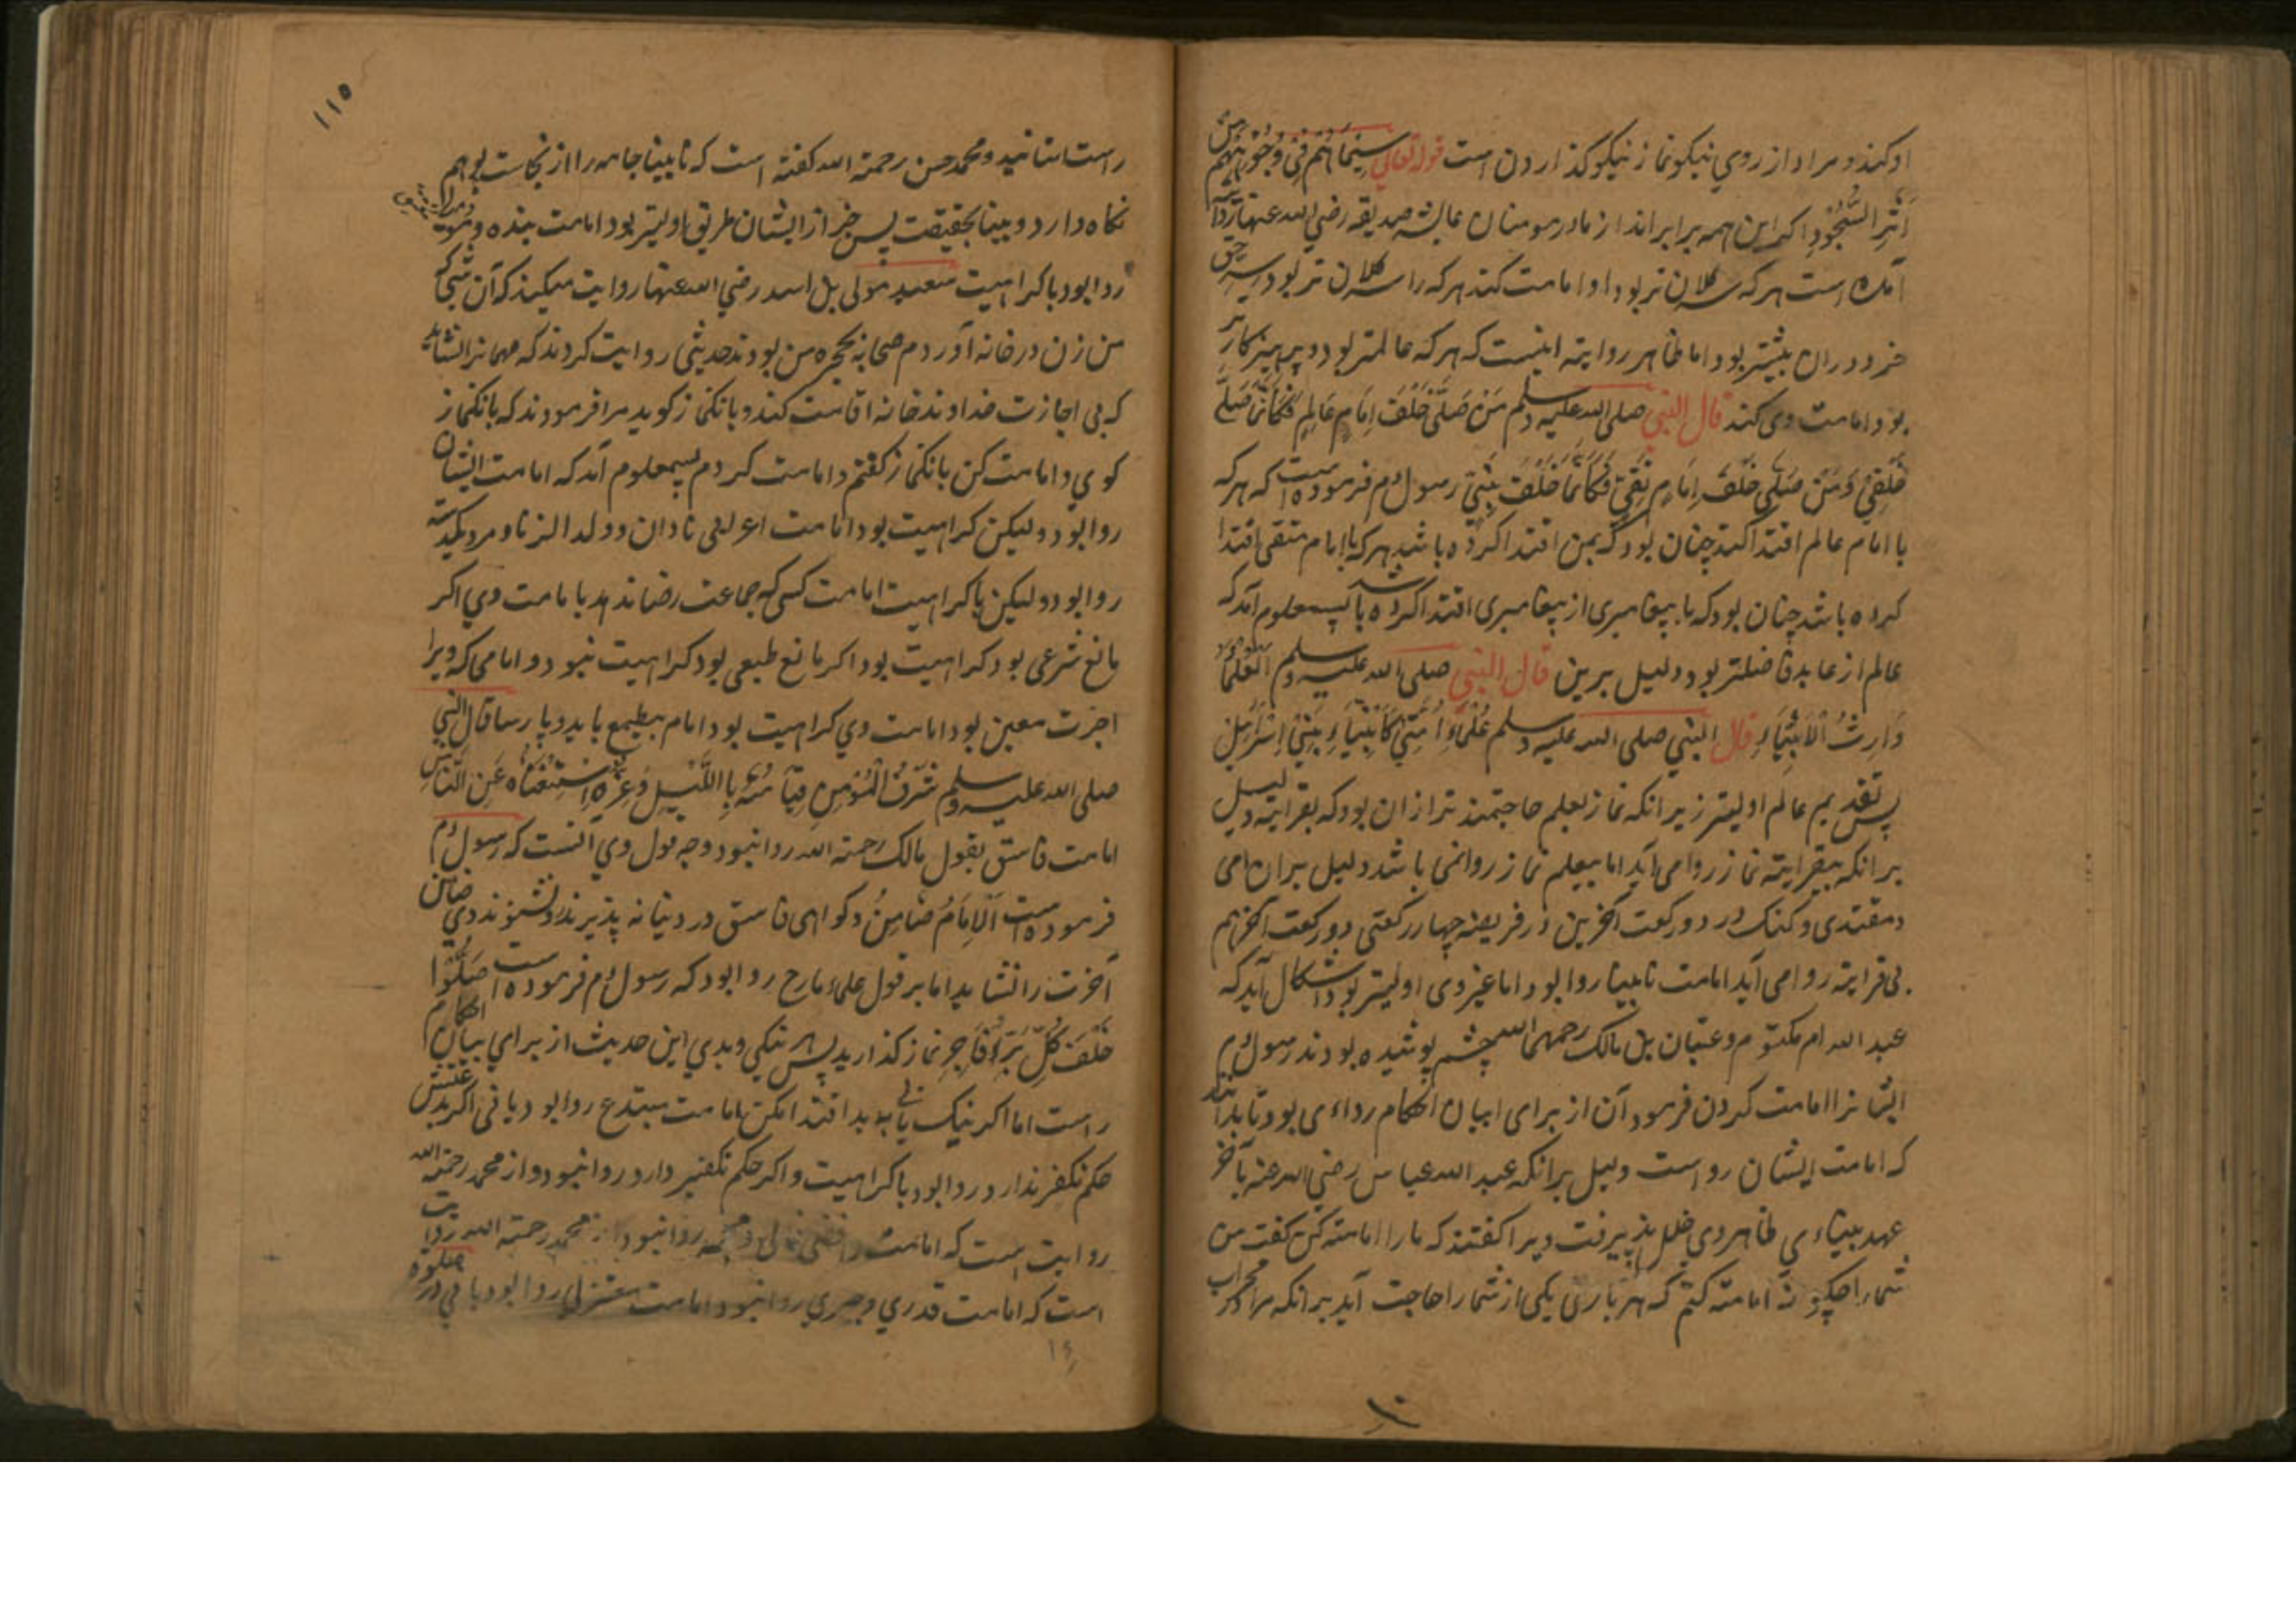 او کند و مراد از روی نیکو نماز نیکو گذاردن است قوله تعالی سِیمَاهُم فِی وُجُوهِهِم مِن
اَثَرِ السُّجُودِ اکر این همه برابراند از مادر مومنان عایشه صدیقه رضی الله عنها
آمده است هر که کلان تر بود او امامت کند هر که را کلان تر بود
خرد دران بیشتر بود اما ظاهر روایته اینست که هر که عالمتر بود و پرهیزکار تر
بود امامت وی کند قال النبی صلی الله علیه وسلم مَن صَلَّی خَلفَ اِمَامٍ عَالِمٍ فَکَاَنَّمَا صَلَّی
خَلفِی وَمَن صَلَّی خَلفَ اِمَامٍ تَقِیٍّ فَکَاَنَّمَا خَلفَ نَبِیٍّ رسول م فرموده است که هر که
با امام عالم اقتدا کند چنان بود که بمن اقتدا کرده باشد هر که با امام متقی اقتدا
کرده باشد چنان بود که با پیغامبری از پیغامبری اقتدا کرده باشد پس معلوم آمد که
عالم از عابد فاضلتر بود و دلیل برین قال النبی صلی الله علیه وسلم اَلعُلَمَاءُ
وَارِثُ الاَنبِیَاءِ قال النبی صلی الله علیه وسلم عُلَمَاءُ اُمَّتِی کَاَنبِیَاءِ بَنِی اِسرَائِیلَ
پس تقدیم عالم اولیتر زیرانکه نماز بعلم حاجتمند تر ازان بود که بقرایته دلیل
برانکه بیقرایته نماز روا می آید اما بیعلم نماز روا نمی باشد دلیل بران امی
و مقتدی و کنک در دو رکعت آخرین در فریضه چهار رکعتی دو رکعت آخر هم
بی قرایته روا می آید امامت نابینا روا بود اما غیر وی اولیتر بود اشکال آید که
عبد الله ام مکتوم و عتبان بن مالک رحمهما الله چشم پوشیده بودند رسول م
ایشانرا امامت کردن فرمود آن از برای بیان احکام بود تا بدانند
که امامت ایشان رواست دلیل برانکه عبد الله عباس رضی الله عنه بآخر
عهد بیناءی ظاهر وی خلل پذیرفت ویرا گفتند که ما را امامته کن گفت من
شما را چکونه امامته کنم که هر باری یکی از شما را حاجت آید برانکه مرا در محراب
۱۱۵
راست استانید و محمد حسن رحمة الله گفته است که نابینا جامه را از نجاست بوهم
نکاه دارد و بینا بحقیقت پس جز از ایشان طریق اولیتر بود امامت بنده
روا بود با کراهیت سعید مولی بن اسد رضی الله عنها روایت میکند که آن شبی که
من زن در خانه آوردم صحابه بحجره من بودند حدیثی روایت کردند که مهمانرا نشاید
که بی اجازت خداوند خانه اقامت کند و بانکنماز گوید مرا فرمودند که بانکنماز
کوی و امامت کن بانکنماز گفتم و امامت کردم پس معلوم آمد که امامت ایشان
روا بود ولیکن کراهیت بود امامت اعرابی نادان و ولد الزنا
روا بود ولیکن با کراهیت امامت کسی که جماعت رضا ندهد با مامت وی اکر
مانع شرعی بود کراهیت بود اکر مانع طبعی بود کراهیت نبود و امامی که ویرا
اجرت معین بود امامت وی کراهیت بود امام بیطمع باید و پارسا قال النبی
صلی الله علیه وسلم شَرَفُ المُؤمِنِ قِیَامُهُ بِاللَّیلِ وَعِزُّهُ اِستِغنَاؤُهُ عَنِ النَّاسِ
امامت فاسق بقول مالک رحمة الله روا نبود وجه قول وی آنست که رسول م
فرموده است اَلاِمَامُ ضَامِنٌ و کواهی فاسق در دنیا نه پذیرند و نشنوند وی ضامن
آخرت را نشاید اما بر قول علماء ما رح روا بود که رسول م فرموده است صَلُّوا
خَلفَ کُلِّ بَرٍّ وَفَاجِرٍ نماز کذارید پس هر نیکی و بدی این حدیث از برای بیان احکام
راست اما اکر نیک یابی بد اقتدا مکن امامت مبتدع روا بود یا نی اکر
حکم تکفر ندارد روا بود با کراهیت و اکر حکم تکفیر دارد روا نبود و از محمد رحمة الله
روایت است که امامت رافضی غالی روا نبود از محمد رحمة الله روایت
است که امامت قدری و جبری روا نبود امامت معتزلی روا بود یا نی در صلوة